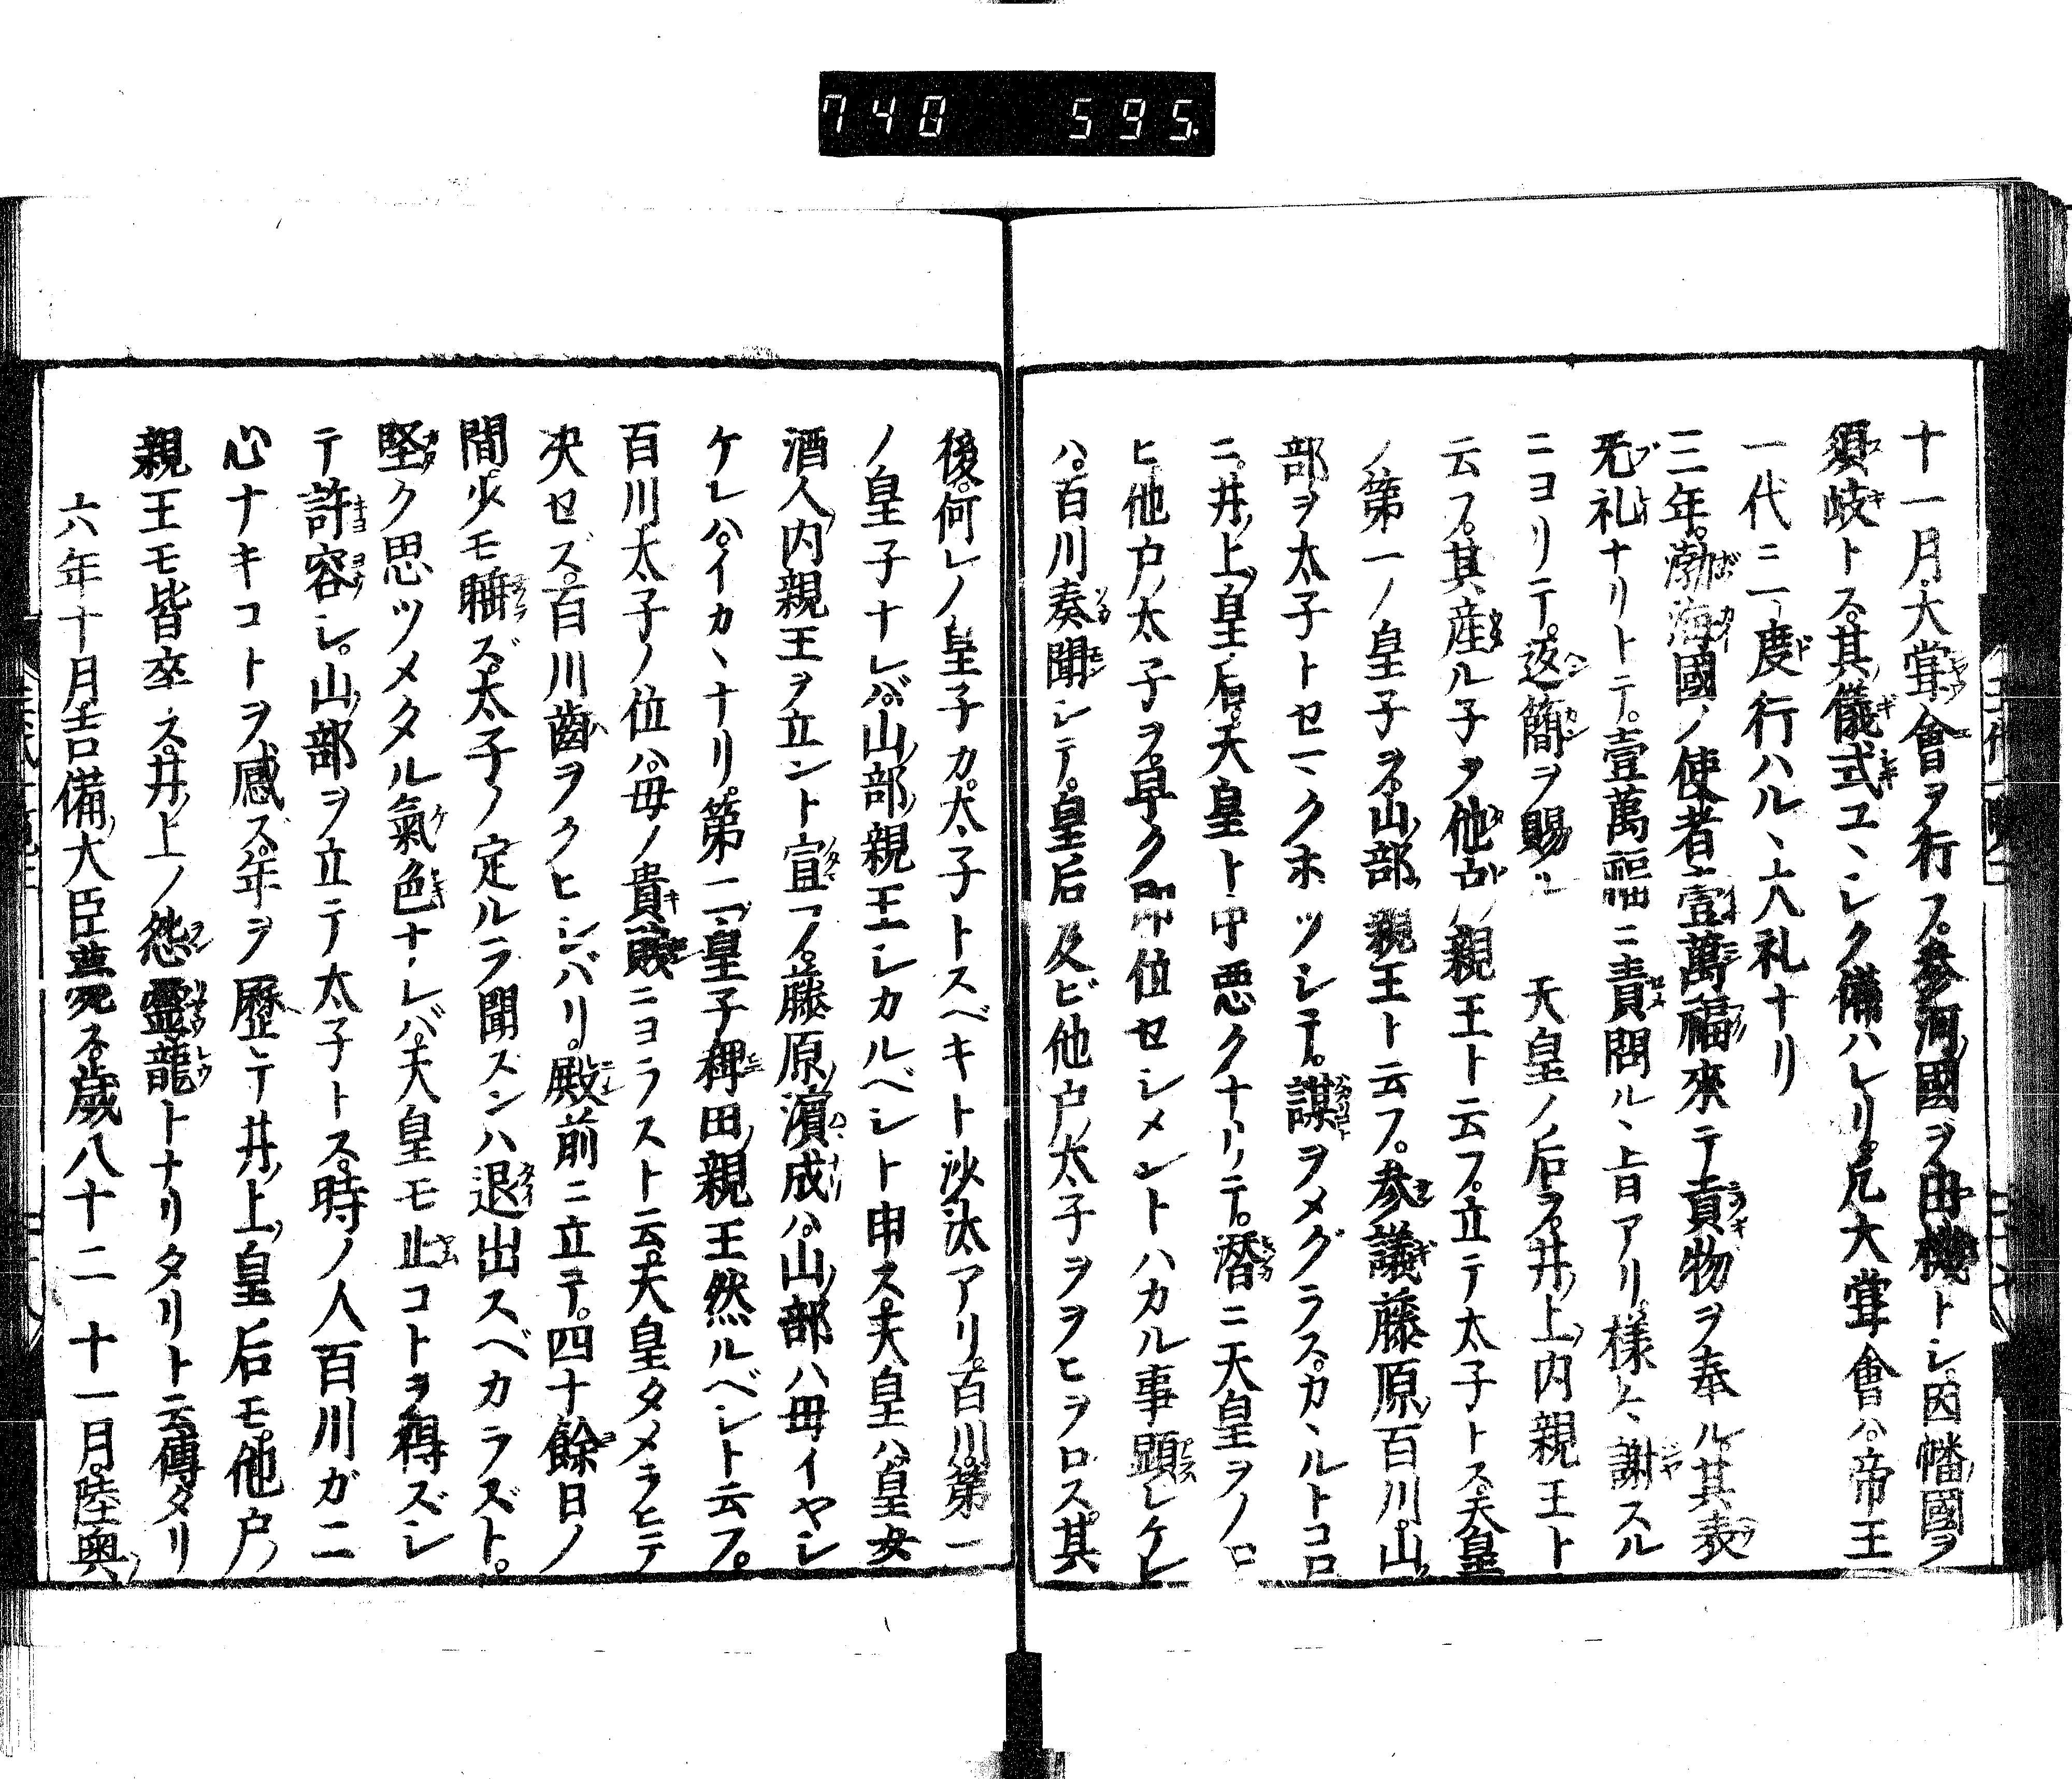 740 595.
十一月大甞會ヲ行フ。參河國ヲ由機トシ。因幡國ヲ
須岐トス。其儀式ユヽシク備ハレリ。凡大甞會ハ。帝王
一代ニ一度行ハルヽ大礼ナリ
三年。渤海國ノ使者壹萬福來テ貢物ヲ奉ル。其表
无礼ナリトテ。壹萬福ニ責問ルヽ旨アリ。樣々謝スル
ニヨリテ。返簡ヲ賜ル 天皇ノ后ヲ。井上内親王ト
云フ。其産ル子ヲ他戸親王ト云フ。立テ太子トス。天皇
ノ第一ノ皇子ヲ。山部親王ト云フ。參議藤原百川。山
部ヲ太子トセマクホツシテ。謀ヲメグラス。カヽルトコロ
ニ。井上皇后。天皇ト中悪クナリテ。潜ニ天皇ヲノロ
ヒ他戸太子ヲ。早ク即位セシメントハカル事顕レケレ
ハ。百川奏聞シテ。皇后及ビ他戸太子ヲヲヒヲロス。其
後。何レノ皇子カ。太子トスベキト沙汰アリ。百川。第一
ノ皇子ナレバ。山部親王シカルベシト申ス。天皇ハ皇女
酒人内親王ヲ立ント宣フ。藤原濱成ハ。山部ハ母イヤシ
ケレハ。イカヽナリ。第二皇子稗田親王然ルベシト云フ。
百川太子ノ位ハ。母ノ貴賤ニヨラスト云。天皇タメラヒテ
决セズ。百川齒ヲクヒシバリ。殿前ニ立テ。四十餘日ノ
間。少モ睡ズ。太子ノ定ルヲ聞ズンハ退出スベカラズト。
堅ク思ツメタル氣色ナレバ。天皇モ止コトヲ得ズシ
テ許容シ。山部ヲ立テ太子トス。時ノ人百川ガ二
心ナキコトヲ感ス。年ヲ歴テ井上皇后モ。他戸
親王モ皆卒ス。井上ノ怨靈龍トナリタリト云傳タリ
六年十月吉備大臣薨ス。歳八十二 十一月。陸奥